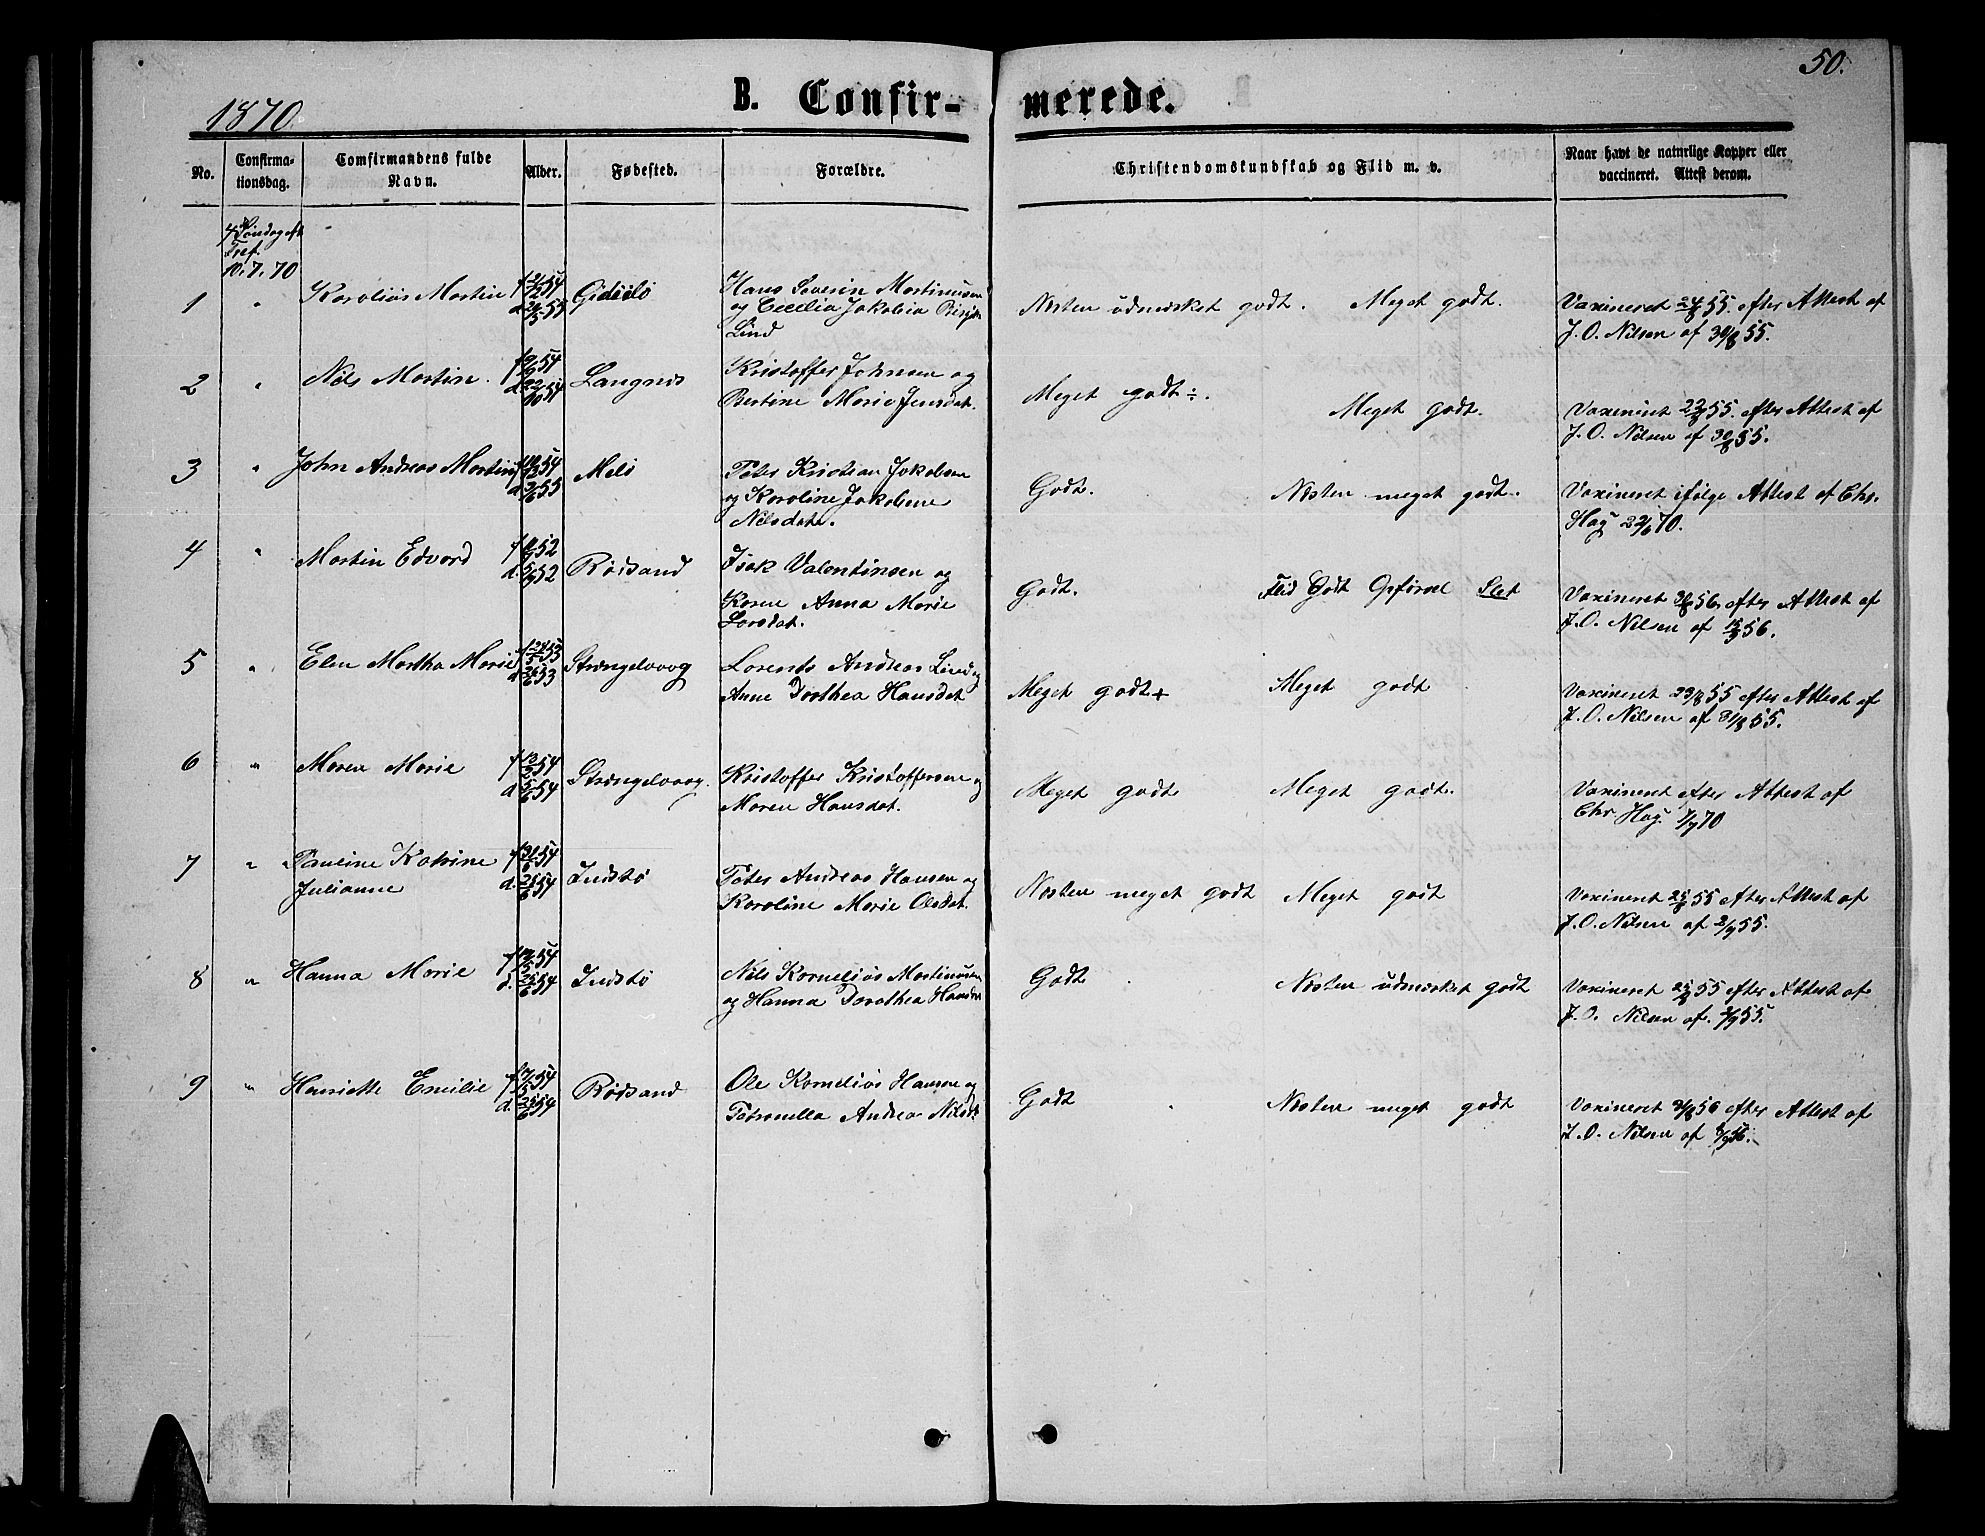 50.
1870.
B. Confir-
merede.
No.
Confirma-
tionsdag.
Comfirmandens fulde
Navn.
Alder.
Fødested.
Forældre.
Christendomskundskab og Flid m. v.
Naar havt de naturlige Kopper eller
vaccineret. Attest derom.
Søndag eft
Tref.
10. 7. 70
1 " Koroliüs Mortin Gidsilö
Hans Severin Martinusen
og Cecilia Jakobia
Lind
Nesten üdmerket godt. Meget godt.
Vaxineret 55. efter Attest af
J. O. Nilsen af 30/8 55.
2 " Nils Mortin. Langnes
Kristoffer Johnsen og
Bertine Marie Jensdat.
Meget godt ÷. Meget godt.
Vaxineret 55. efter Attest af
J. O. Nilsen af 30/8 55.
3 " John Andreas Mortin Melö
Peter Kristian Jakobsen
og Karoline Jakobine
Nilsdat.
Godt. Nesten meget godt.
Vaxineret ifölge Attest af Chr.
Hag 70.
4 " Martin Edvard f 52 d. 52 Rödsand
Isak Valentinsen og
Karen Anna Marie
Larsdat.
Godt. Flid Godt Opförsel Slet
Vaxineret 56, efter Attest af
J. O. Nilsen af 56.
5 " Elen Martha Marie Strengelvaag
Lorents Andreas Lind og
Anne Dorthea Hansdat
Meget godt + Meget godt
Vaxineret 55 efter Attest af
J. O. Nilsen af 31/8 55.
6 " Maren Marie f 54 d 54 Strengelvaag.
Kristoffer Kristoffersen og
Maren Hansdat.
Meget godt Meget godt.
Vaxineret efter Attest af
Chr. Hag. 1/7 70
7 " Pauline Katrine
Julianne Indstö
Peter Andreas Hansen og
Karoline Marie Olsdat.
Nesten meget godt Meget godt
Vaxineret 55 efter Attest af
J. O. Nilsen af 2/9 55.
8 " Hanna Marie f 54 d. 54 Indstö
Nils Korneliüs Martinüsen
og Hanna Dorothea
Godt Nesten üdmerket godt
Vaxineret 55 efter Attest af
J. O. Nilsen af 55.
9 " Henriette Emilie f 54 d. 54 Rödsand
Ole Korneliüs Hansen og
Petronella Andrea
Godt Nesten meget godt
Vaxineret 56 efter Attest af
J. O. Nilsen af 56.